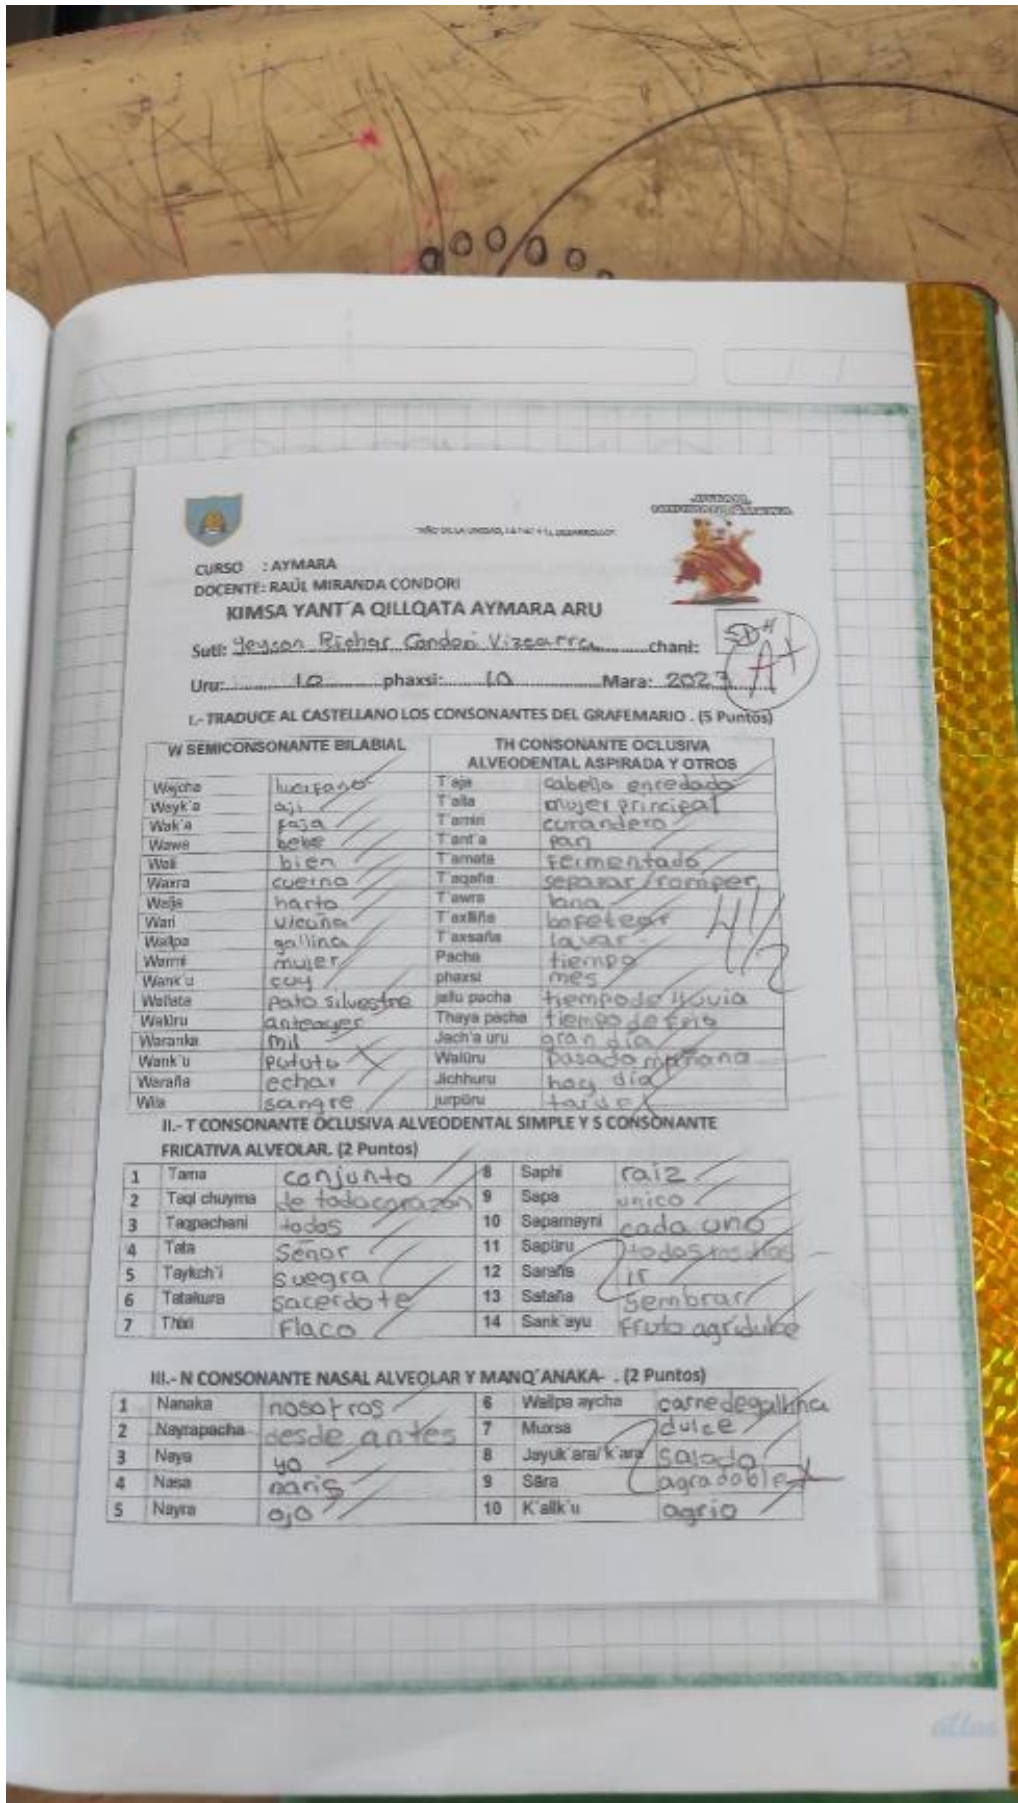 "AÑO DE LA UNIDAD, LA PAZ Y EL DESARROLLO"
CURSO : AYMARA
DOCENTE: RAÚL MIRANDA CONDORI
KIMSA YANT´A QILLQATA AYMARA ARU
Suti: Yeyson Richar Condori Vizcarra chani:
A+
Uru: 10 phaxsi: 10 Mara: 2023
I.- TRADUCE AL CASTELLANO LOS CONSONANTES DEL GRAFEMARIO . (5 Puntos)
W SEMICONSONANTE BILABIAL TH CONSONANTE OCLUSIVA ALVEODENTAL ASPIRADA Y OTROS
Wajcha T´aja cabello enredado
Wayk´a aji T´alla mujer principal
Wak´a faja T´amiri curandero
Wawa bebe T´ant´a pan
Wali bien T´amata fermentado
Waxra cuerno T´aqaña separar/romper
Walja harto T´awra lana
Wari vicuña T´axlliña bofetear
Wallpa gallina T´axsaña lavar
Warmi mujer Pacha tiempo
Wank´u cuy phaxsi mes
Wallata pato silvestre jallu pacha tiempo de lluvia
Walüru anteayer Thaya pacha tiempo de frio
Waranka mil Jach´a uru gran día
Wank´u pututo Walüru pasado mañana
Waraña echar Jichhuru hoy día
Wila sangre jurpüru tarde
4 1/2
II.- T CONSONANTE OCLUSIVA ALVEODENTAL SIMPLE Y S CONSONANTE
FRICATIVA ALVEOLAR. (2 Puntos)
1 Tama conjunto 8 Saphi raiz
2 Taqi chuyma de todo corazon 9 Sapa unico
3 Taqpachani todos 10 Sapamayni cada uno
4 Tata Señor 11 Sapüru todos los dias
5 Taykch´i suegra 12 Saraña ir
6 Tatakura sacerdote 13 Sataña sembrar
7 Thixi Flaco 14 Sank´ayu Fruto agridulce
III.- N CONSONANTE NASAL ALVEOLAR Y MANQ´ANAKA- . (2 Puntos)
1 Nanaka nosotros 6 Wallpa aycha carne de gallina
2 Nayrapacha desde antes 7 Muxsa dulce
3 Naya yo 8 Jayuk´ara/k´ara salado
4 Nasa naris 9 Sära agradable
5 Nayra ojo 10 K´allk´u agrio
atlas